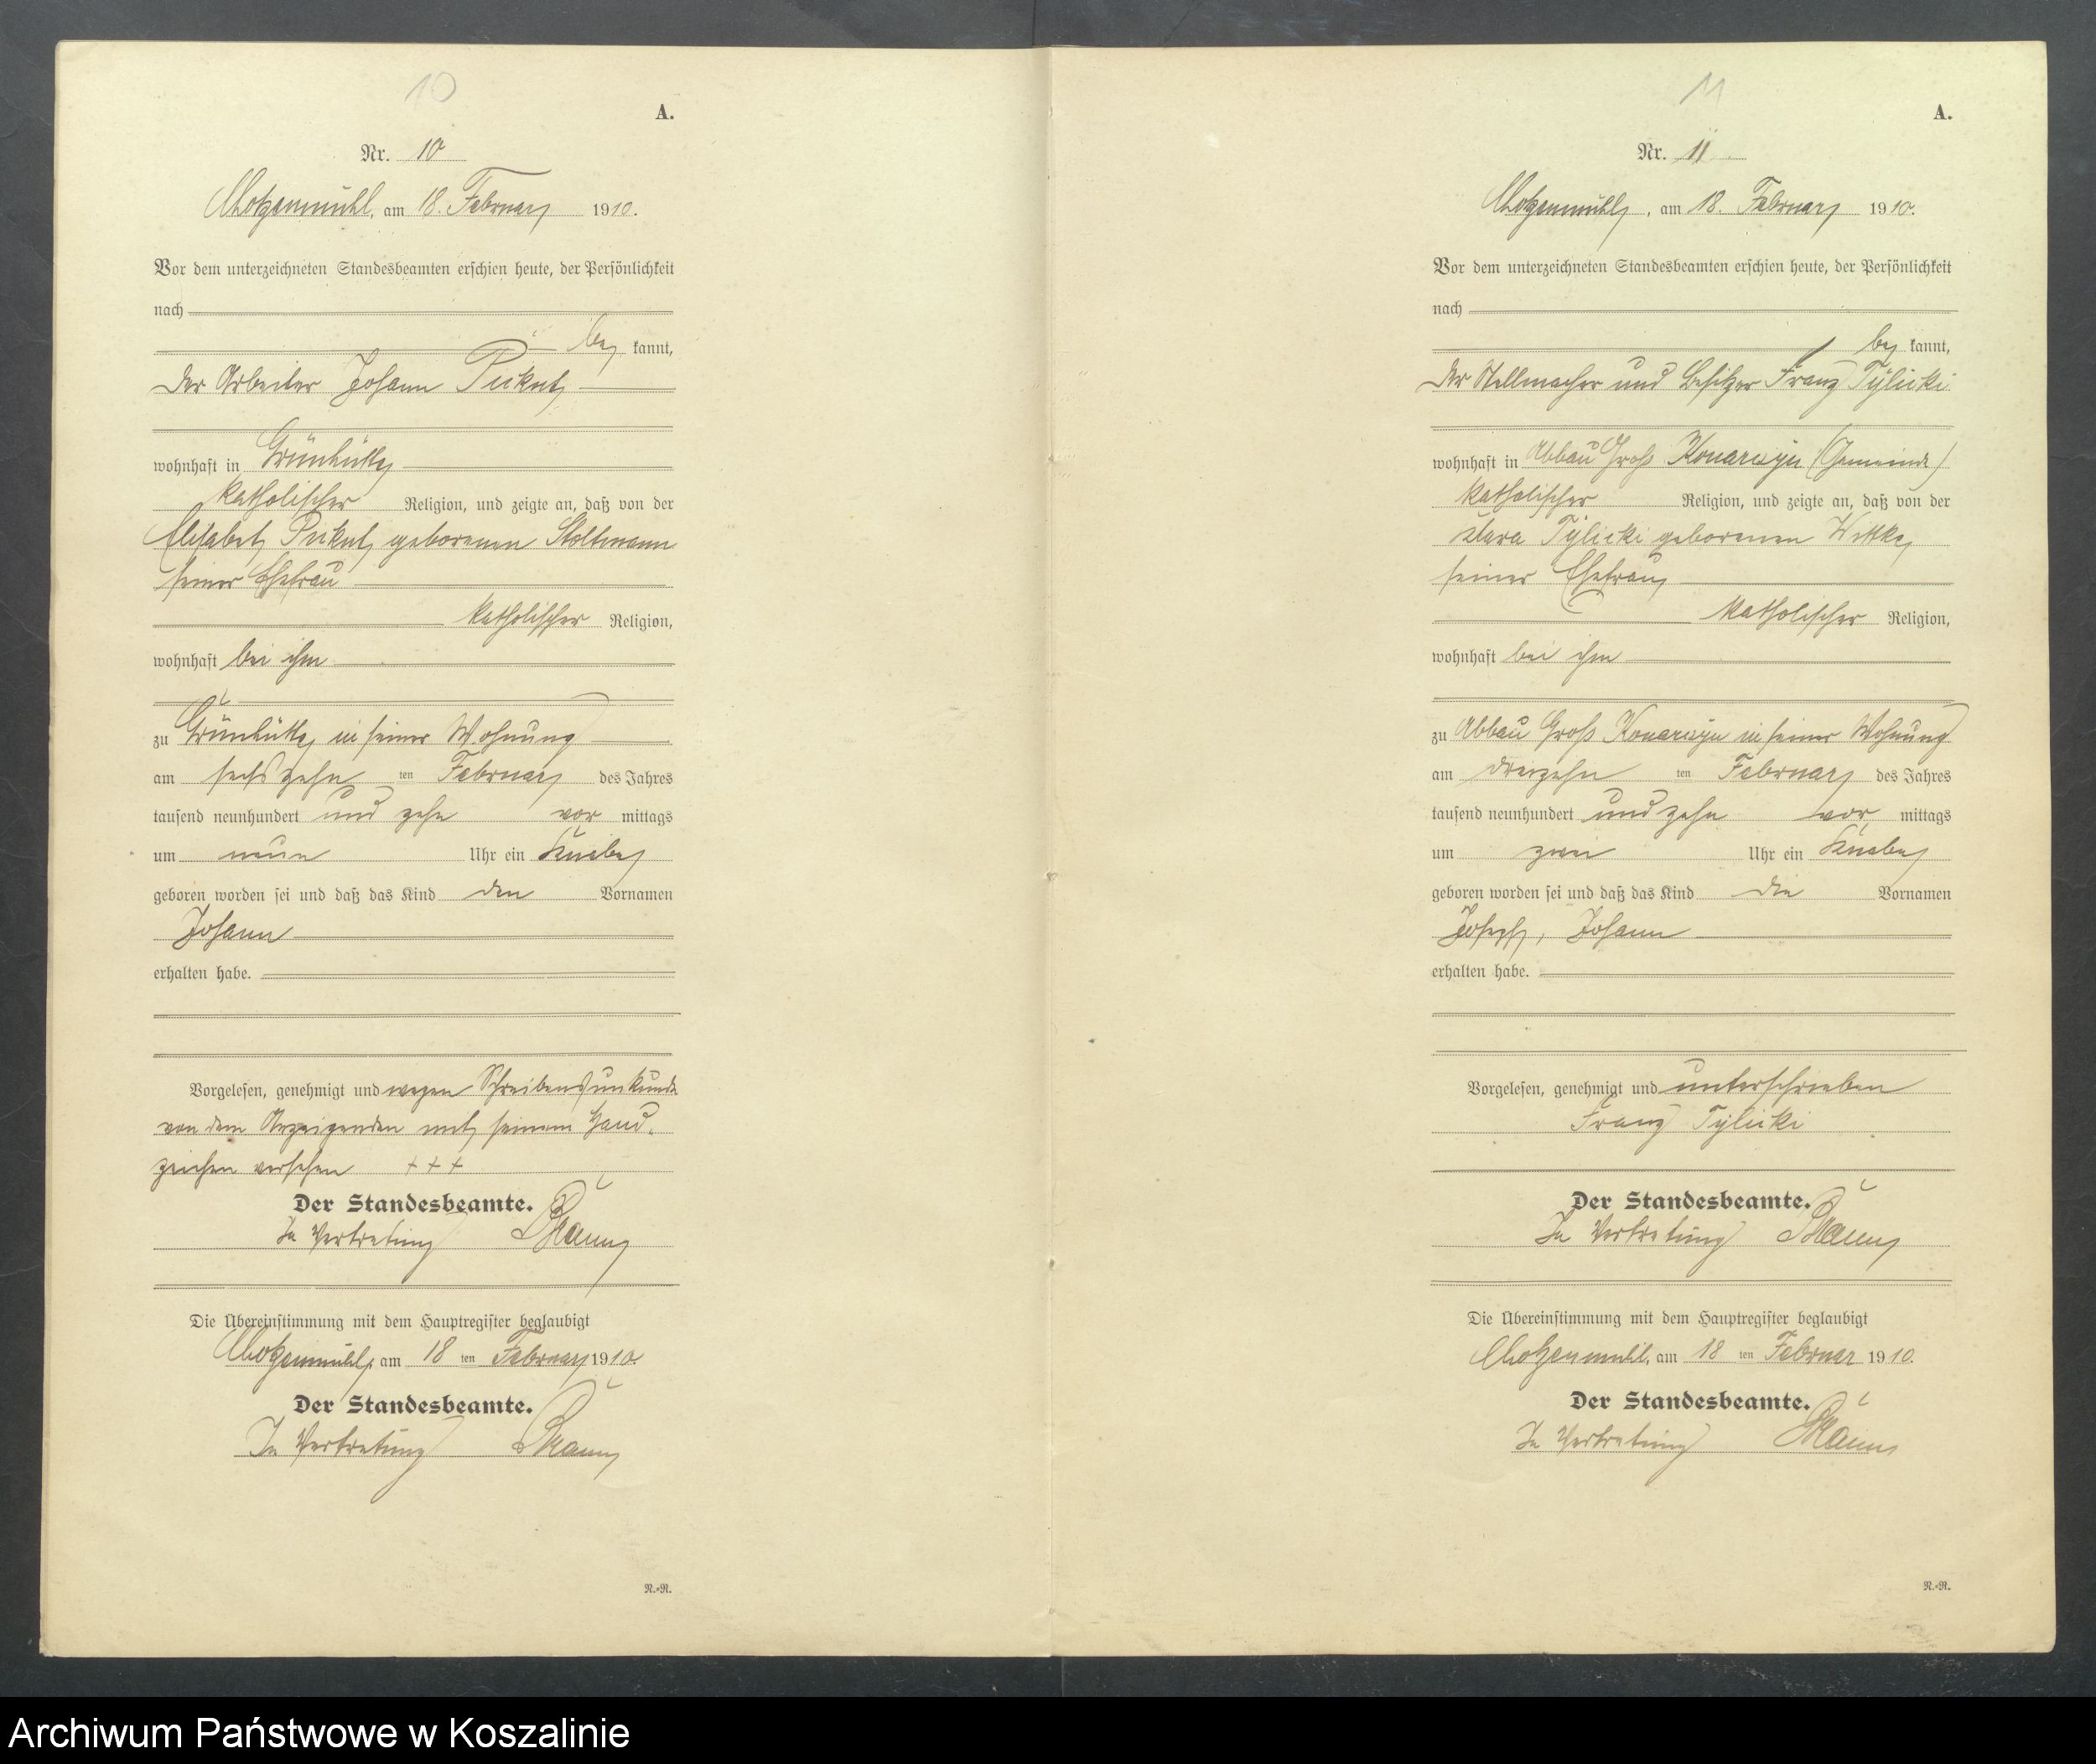 10
A.
Nr. 10
Chotzenmühl, am 18. Februar 1910.
Vor dem unterzeichneten Standesbeamten erschien heute, der Persönlichkeit
nach
be kannt,
der Arbeiter Johann
wohnhaft in Grünhütte
katholischer Religion, und zeigte an, daß von der
Elisabeth geborenen Stoltmann
seiner Ehefrau
katholischer Religion,
wohnhaft bei ihm
zu Grünhütte in seiner Wohnung
am sechszehn ten Februar des Jahres
tausend neunhundert und zehn vor mittags
um neun Uhr ein Knabe
geboren worden sei und daß das Kind den Vornamen
Johann
erhalten habe.
Vorgelesen, genehmigt und wegen Schreibensunkunde
von dem Anzeigenden mit seinem Hand-
zeichen versehen + + +
Der Standesbeamte.
In Vertretung
Die Übereinstimmung mit dem Hauptregister beglaubigt
Chotzenmühl, am 18 ten Februar 1910.
Der Standesbeamte.
In Vertretung
N.-R.
11
A.
Nr. 11
Chotzenmühl, am 18. Februar 1910.
Vor dem unterzeichneten Standesbeamten erschien heute, der Persönlichkeit
nach
be kannt,
der Stellmacher und Besitzer Franz Tylicki
wohnhaft in Abbau Groß Konarczyn (Gemeinde)
katholischer Religion, und zeigte an, daß von der
Klara Tylicki geborenen Wittke
seiner Ehefrau
katholischer Religion,
wohnhaft bei ihm
zu Abbau Groß Konarczyn in seiner Wohnung
am dreizehn ten Februar des Jahres
tausend neunhundert und zehn vor mittags
um zwei Uhr ein Knabe
geboren worden sei und daß das Kind die Vornamen
Joseph, Johann
erhalten habe.
Vorgelesen, genehmigt und unterschrieben
Franz Tylicki
Der Standesbeamte.
In Vertretung
Die Übereinstimmung mit dem Hauptregister beglaubigt
Chotzenmühl, am 18 ten Februar 1910.
Der Standesbeamte.
In Vertretung
N.-R.
Archiwum Państwowe w Koszalinie